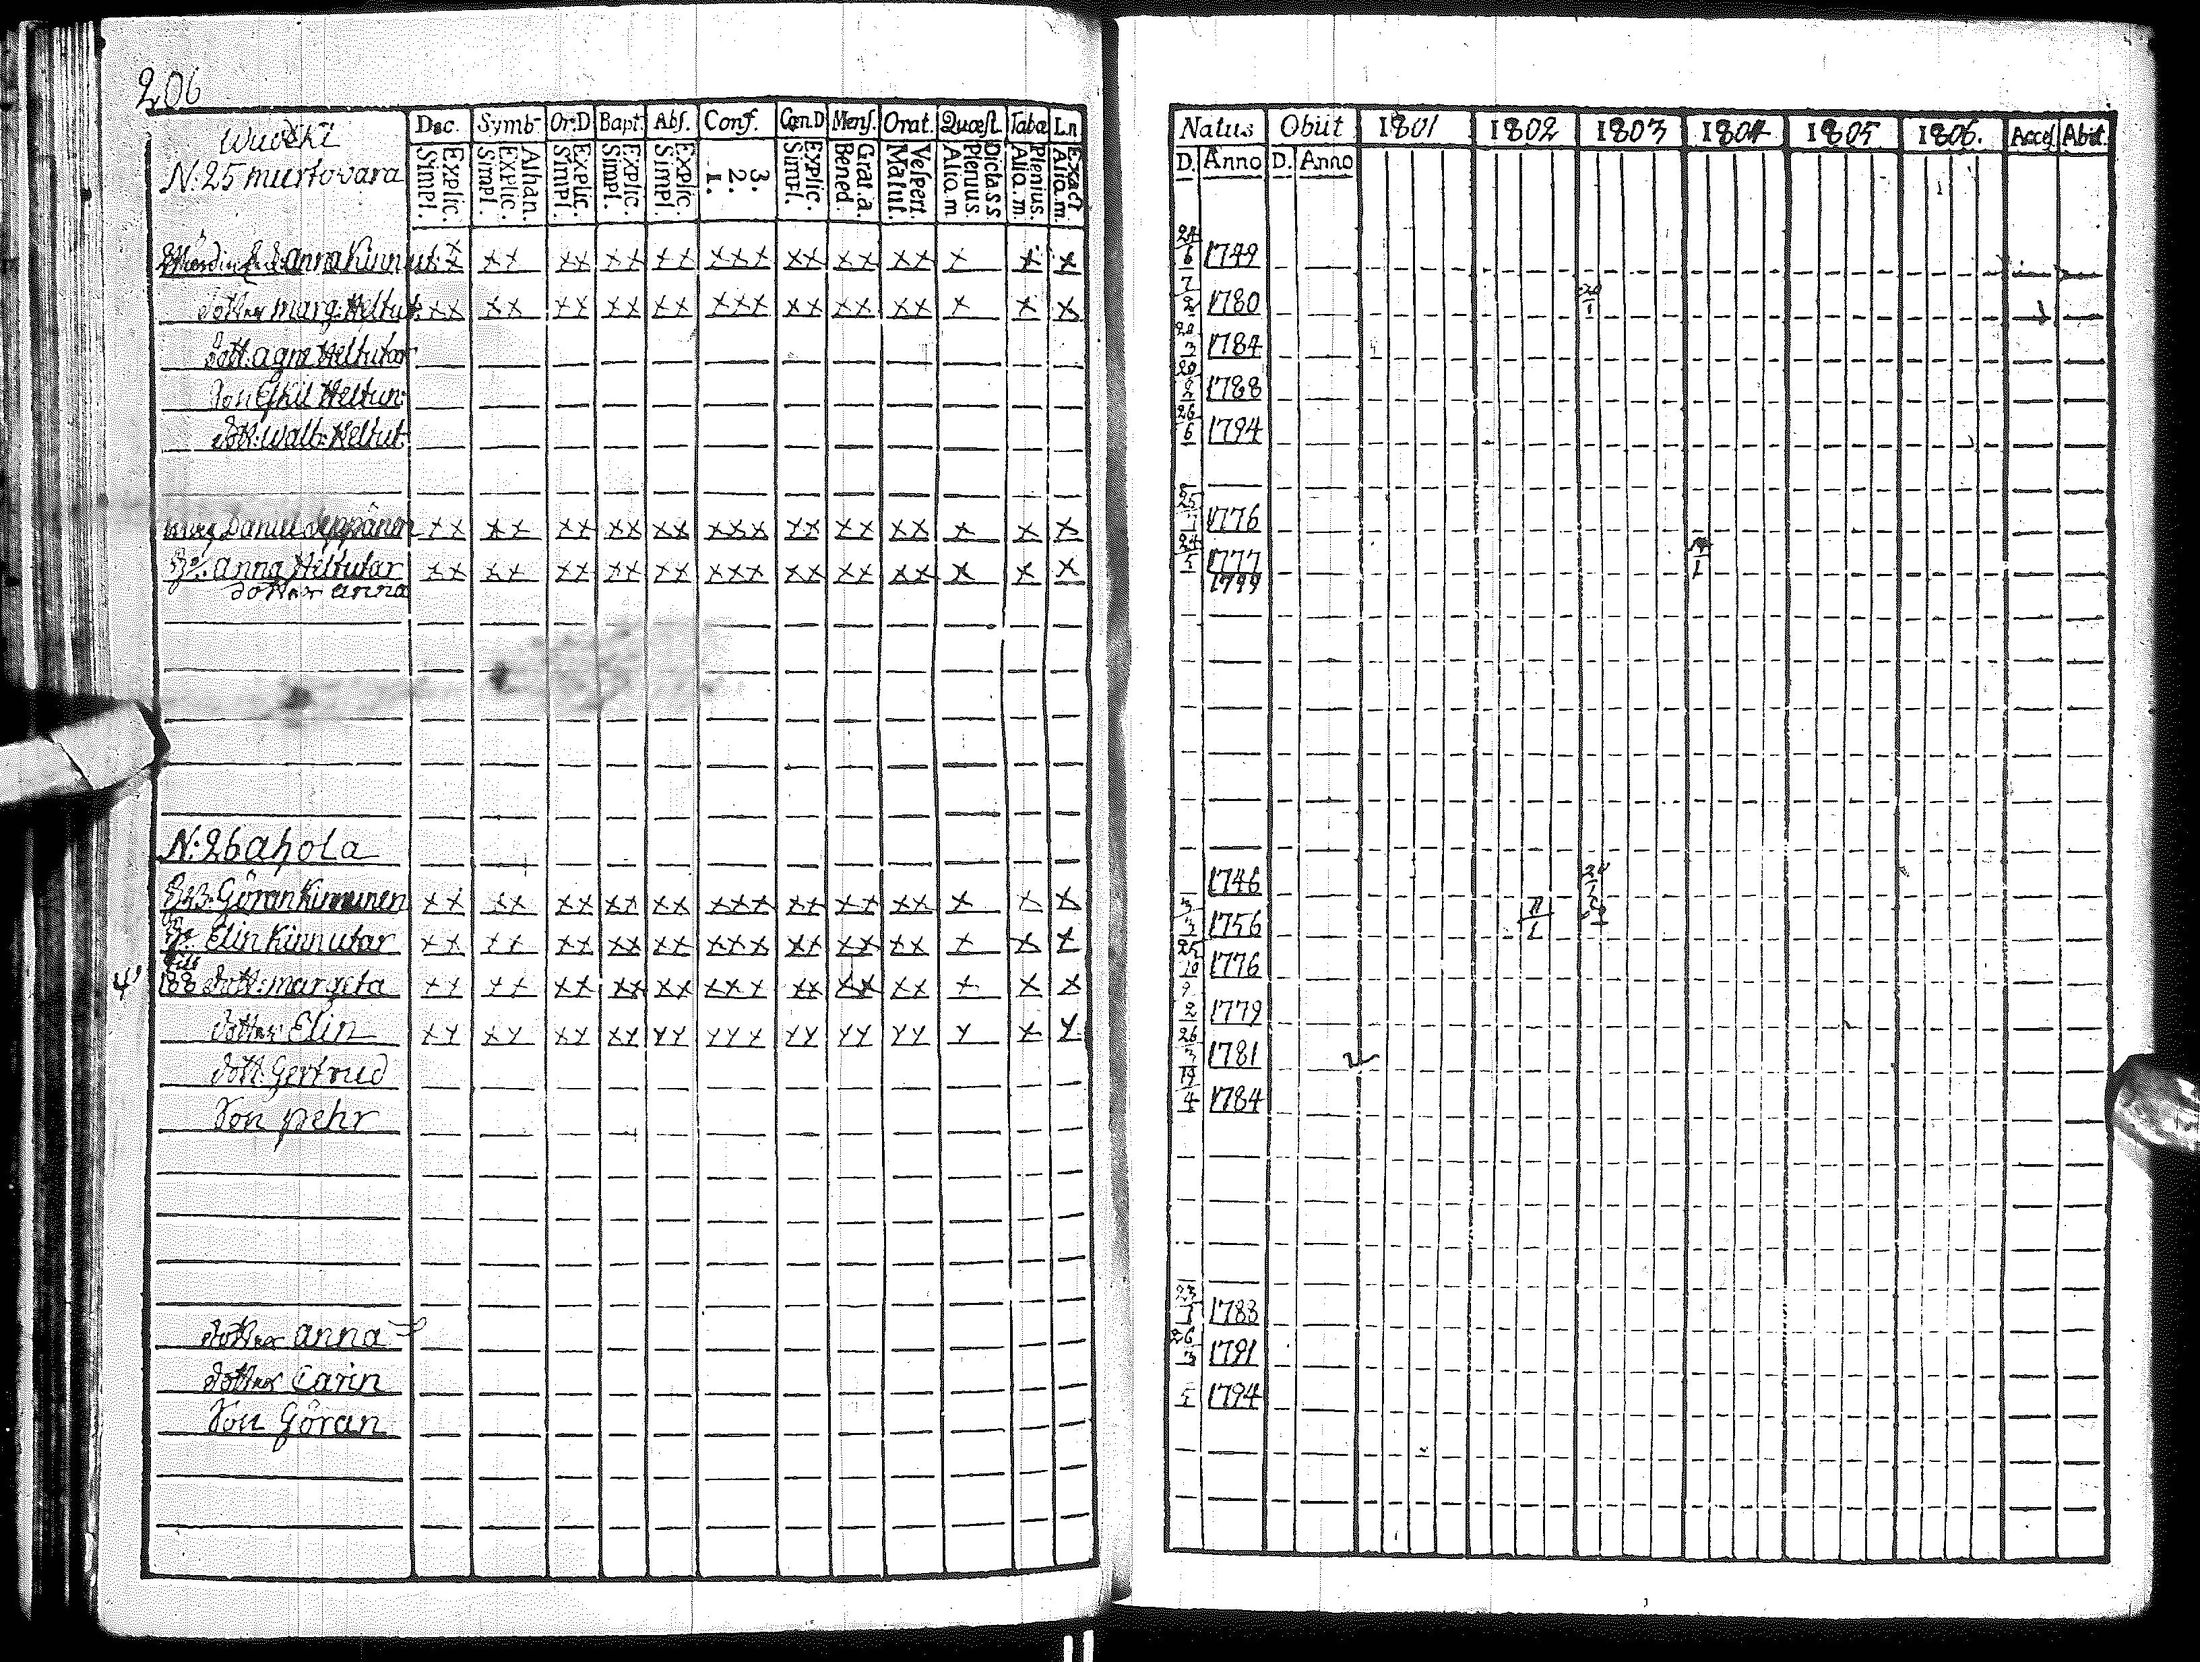 206
Wuocki
N:25 murtovara
Dec. Symb. Or:D Bapt. Abs. Conf. Cœn.D Mens. Orat. Quæst. Tabœ Ln
Simpl. Explic. Simpl. Explic. Athan. Simpl. Explic. Simpl. Explic. Simpl. Explic. 1. 2. 3. Simpl. Explic. Bened. Grat. a. Matut. Vespert. Alio. m Plenius. Dicta s s Alio. m. Plenius. Alio. m. Exact
Natus Obiit 1801 1802 1803 1804 1805 1806. Acces Abiit.
D. Anno D. Anno
Anna Kinnut: xx xx xx xx xx xxx xx xx xx x x x 24/6 1749
dotter marg: Heltut: xx xx xx xx xx xxx xx xx xx x x x 7/2 1780
dott. agn: Heltutar 20/3 1784
Son Eskil Heltun: 1788
dott: walb: Heltut: 26/6 1794
Daniel Seppänen xx xx xx xx xx xxx xx xx xx x x x 1776
anna Heltutar xx xx xx xx xx xxx xx xx xx x x x 24/5 1777
dotter anna 1799
N:26 ahola
Göran Kinnunen xx xx xx xx xx xxx xx xx xx x x x 1746
Elin Kinnutar xx xx xx xx xx xxx xx xx xx x x x 3/3 1756
188 dott: margeta xx xx xx xx xx xxx xx xx xx x x x 25/10 1776
dotter Elin xx xx xx xx xx xxx xx xx xx x x x 9/2 1779
dott. Gertrud 26/3 1781
Son pehr 19/4 1784
dotter anna 23/1 1783
dotter Carin 26/3 1791
Son Göran 1794